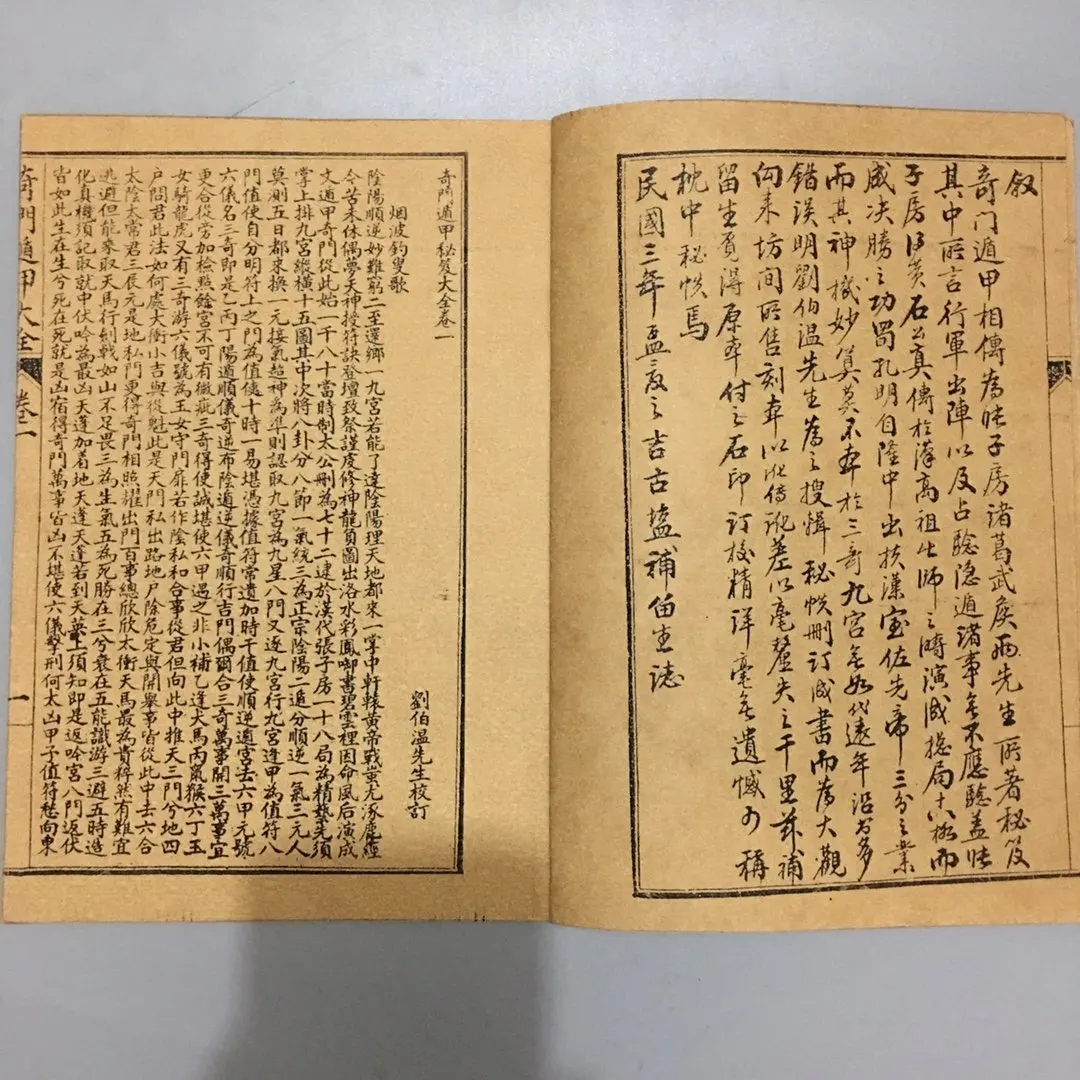 叙
奇门遁甲相傳為張子房諸葛武侯兩先生所著秘笈
其中所言行軍出陣以及占驗隐遁諸事無不應驗盖張
子房得黄石公真傳於漢高祖出師之時演成總局十八極而
成决勝之功蜀孔明自隆中出扶漢室佐先帝三分之業
而其神機妙算莫不本於三奇九宫無如代遠年沿書多
錯误明劉伯温先生為之搜輯秘帙删订成書而為大觀
向来坊間所售刻本以訛傳訛差以毫釐失之千里兹補
留生覓得原本付之石印订校精详毫無遺憾可稱
枕中秘帙焉
民國三年孟夏之吉古鹽補留生誌
奇門遁甲秘笈大全卷一
劉伯温先生校訂
烟波釣叟歌
陰陽順逆妙難窮二至還鄉一九宮若能了達陰陽理天地都來一掌中軒轅黃帝戰蚩尤涿鹿經
今苦未休偶夢天神授符訣登壇致祭謹虔修神龍負圖出洛水彩鳳啣書碧雲裡因命風后演成
文遁甲奇門從此始一千八十當時制太公刪為七十二逮於漢代張子房一十八局為精藝先須
掌上排九宮縱橫十五圖其中次將八卦分八節一氣統三為正宗陰陽二遁分順逆一氣三元人
莫測五日都來換一元接氣超神為準則認取九宮為九星八門又逐九宮行九宮逢甲為值符八
門值使自分明符上之門為值使十時一易堪憑據值符常遣加時干值使順逆遁宮去六甲元號
六儀名三奇即是乙丙丁陽遁順儀奇逆布陰遁逆儀奇順行吉門偶爾合三奇萬事開三萬事宜
更合從旁加檢點餘宮不可有微疵三奇得使誠堪使六甲遇之非小補乙逢犬馬丙鼠猴六丁玉
女騎龍虎又有三奇游六儀號為玉女守門扉若作陰私和合事從君但向此中推天三門兮地四
户問君此法如何處太衝小吉與從魁此是天門私出路地户除危定與開舉事皆從此中去六合
太陰太常君三辰元是地私門更得奇門相照耀出門百事總欣欣太衝天馬最為貴猝然有難宜
逃避但能乘取天馬行劍戟如山不足畏三為生氣五為死勝在三兮衰在五能識游三避五時造
化真機須記取就中伏吟為最凶天蓬加着地天蓬天蓬若到天英上須知即是返吟宮八門返伏
皆如此生在生兮死在死就是凶宿得奇門萬事皆凶不堪使六儀擊刑何太凶甲子值符愁向東
奇門遁甲大全 卷一 一